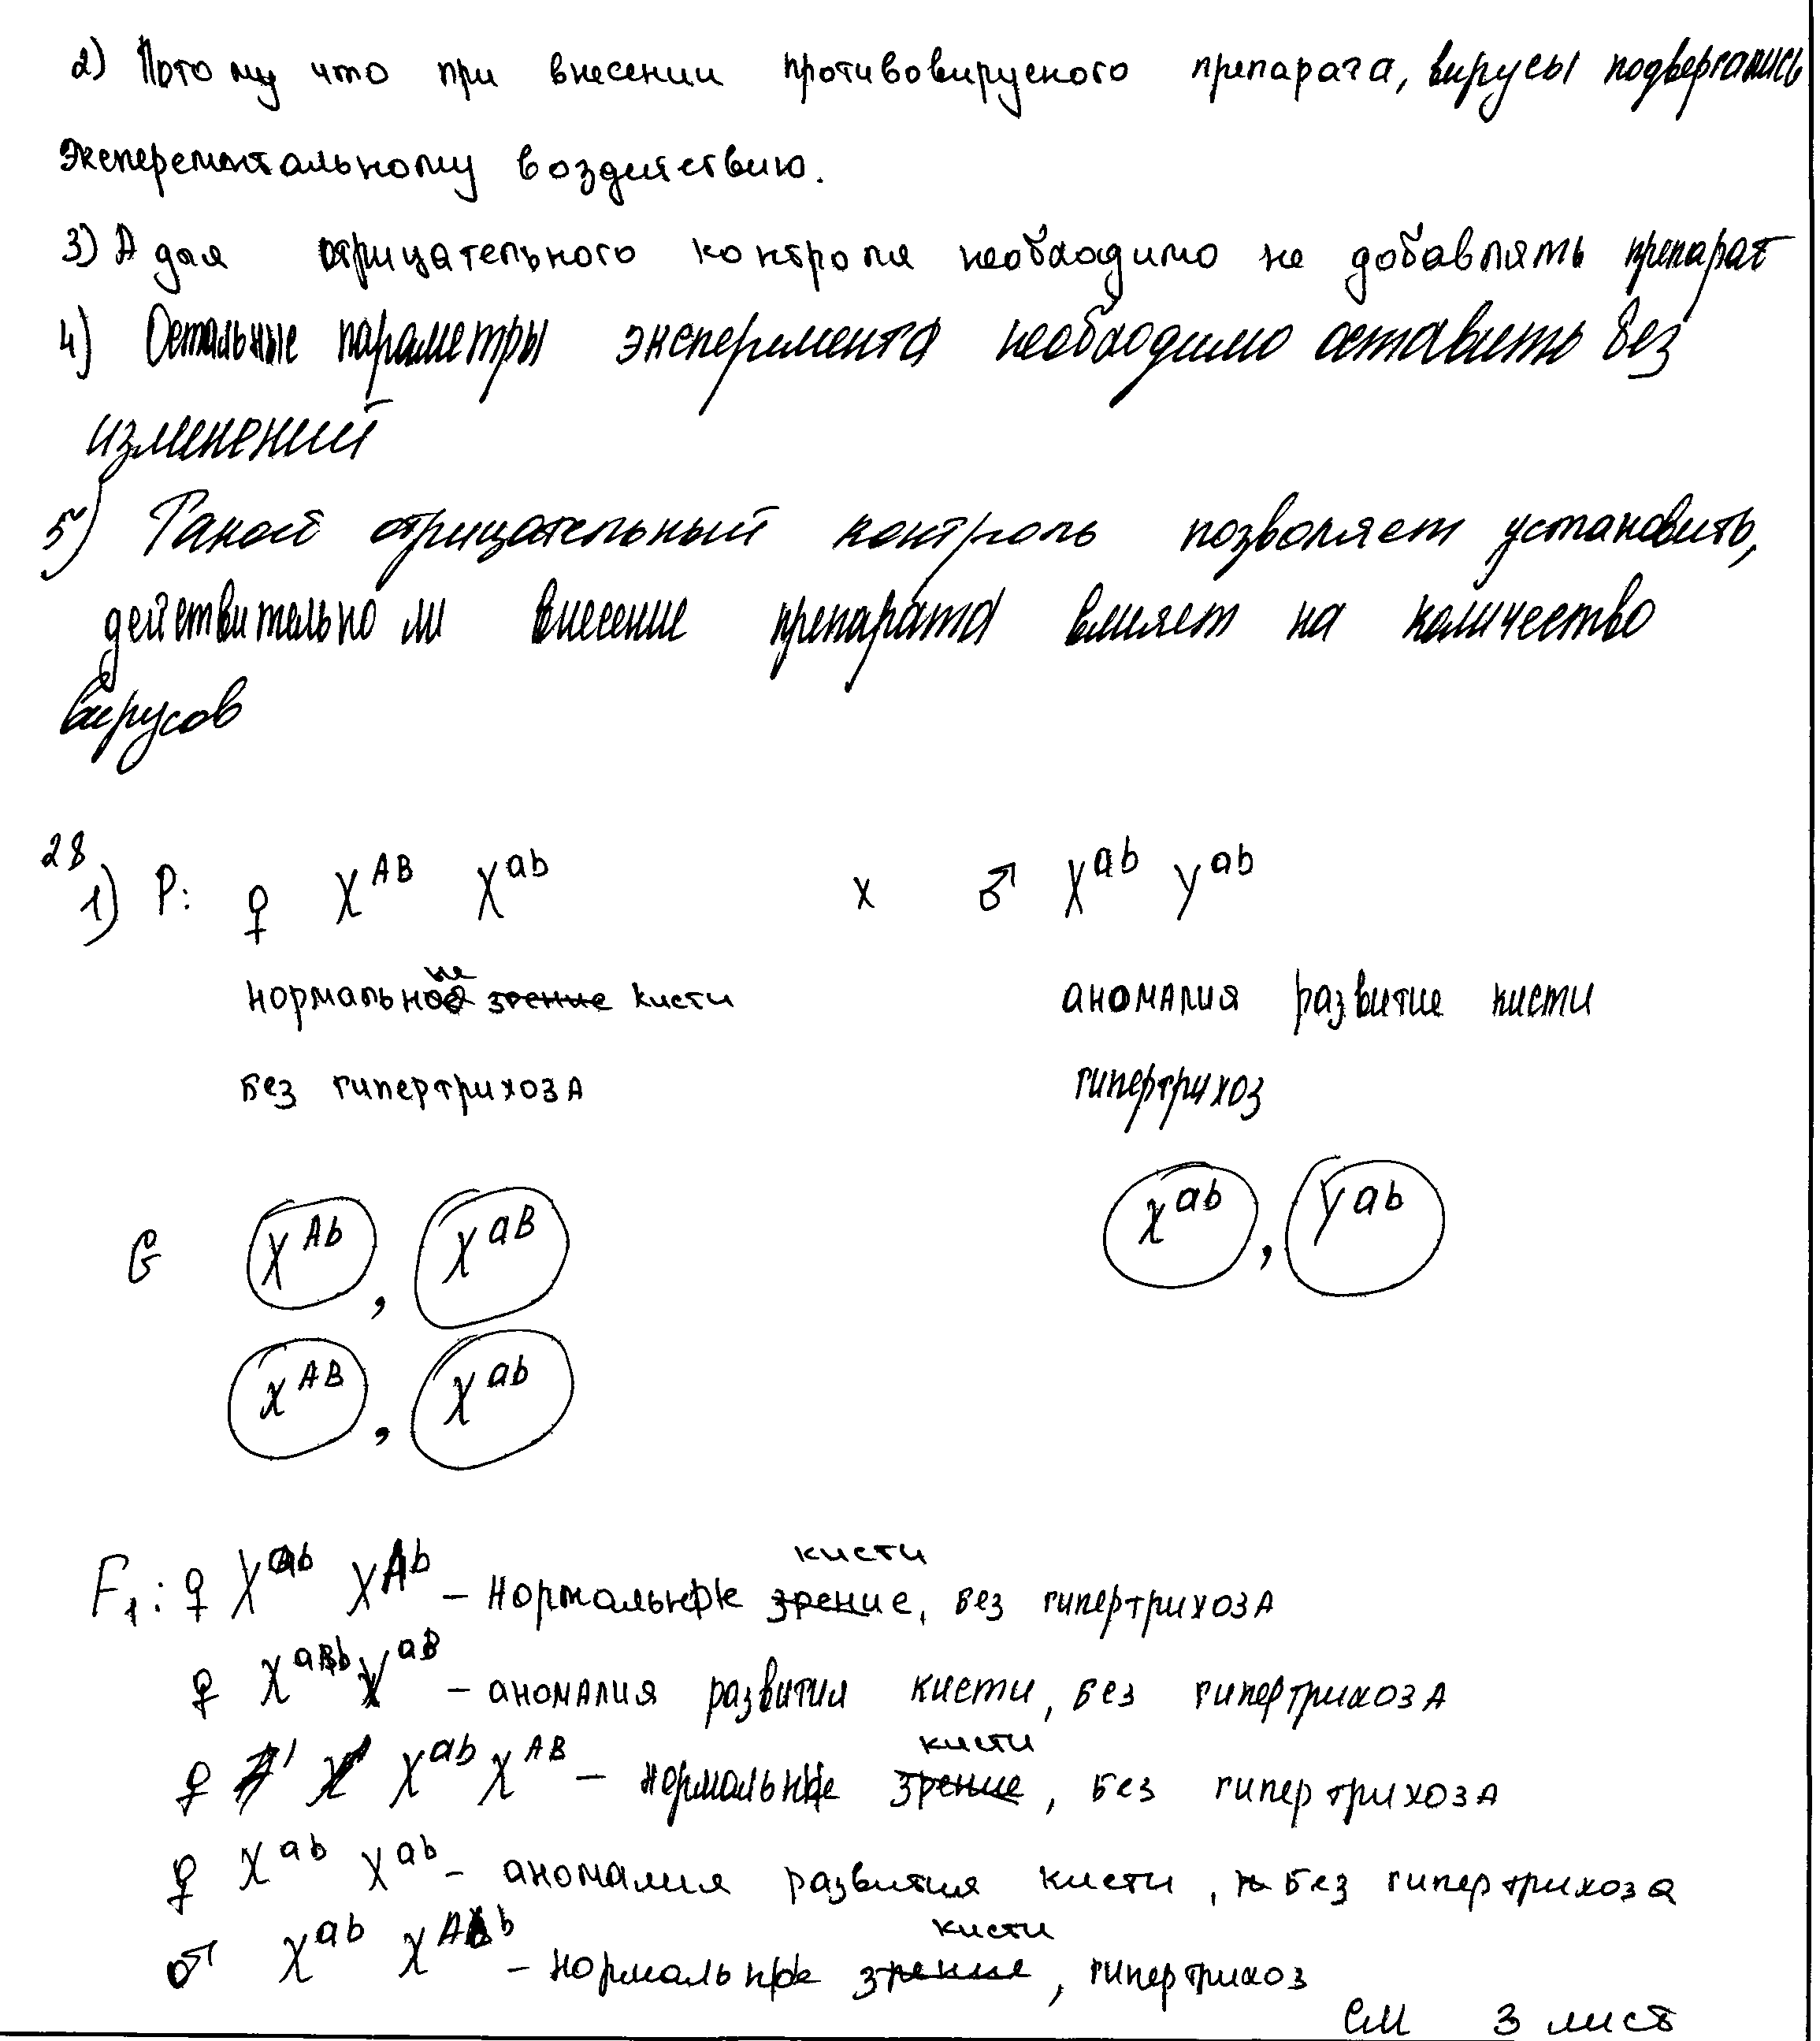 2) Потому что при внесении противовирусного препарата, вирусы подвергались
эксперементальному воздействию.
3) А для отрицательного контроля необходимо не добавлять препарат
4) Остальные параметры эксперимента необходимо оставить без
изменений
5) Такой отрицательный контроль позволяет установить,
действительно ли внесение препарата влияет на количество
вирусов
28
1) P: ♀ X^AB X^ab x ♂ X^ab Y^ab
нормальные зрение кисти аномалия развитие кисти
без гипертрихоза гипертрихоз
G X^Ab, X^aB X^ab, Y^ab
X^AB, X^ab
кисти
F1: ♀ X^ab X^Ab – нормальные зрение, без гипертрихоза
♀ X^ab X^aB – аномалия развития кисти, без гипертрихоза
кисти
♀ X^ab X^AB – нормальные зрение, без гипертрихоза
♀ X^ab X^ab – аномалия развития кисти, без гипертрихоза
кисти
♂ X^ab X^Ab – нормальные зрение, гипертрихоз
см 3 лист